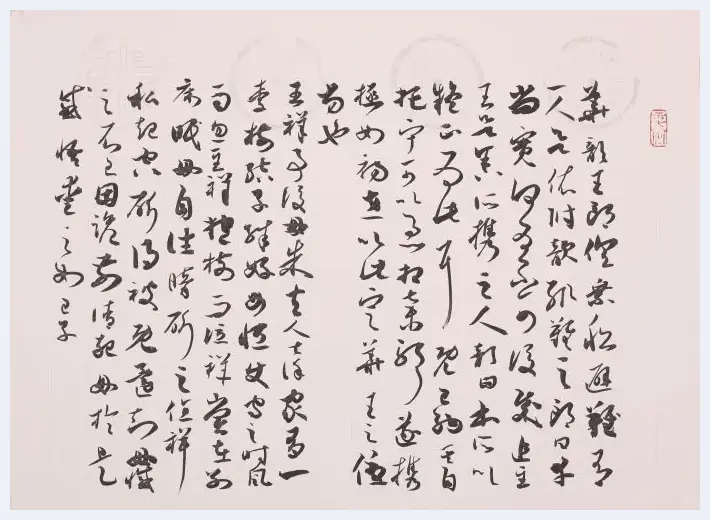 華歆王朗俱乘船避難有
一人欲依附歆輒難之朗曰幸
尚寬何為不可後賊追至
王欲舍所攜之人歆曰本所以
疑正為此耳既已納其自
托寧可以急相棄邪遂攜
拯如初世以此定華王之優
劣也
王祥事後母朱夫人甚謹家有一
李樹結子殊好母恆使守之時風
雨忽至祥抱樹而泣祥嘗在別
床眠母自往暗斫之值祥
私起空斫得被既還知母憾
之不已因跪前請死母於是
感悟愛之如己子